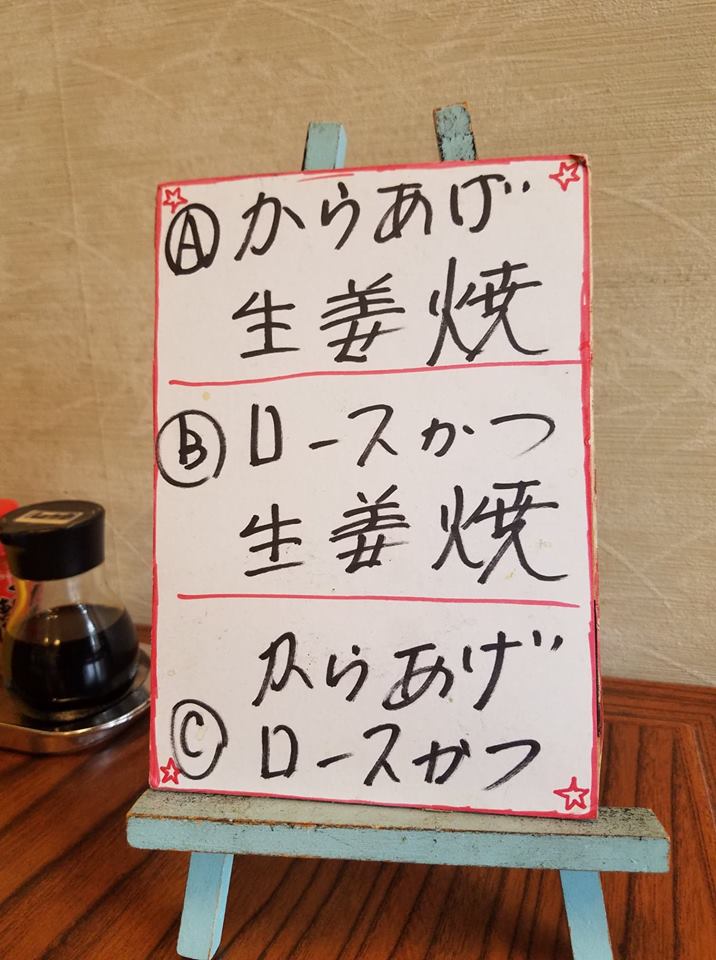 Ⓐ からあげ
生姜焼
Ⓑ ロースかつ
生姜焼
からあげ
Ⓒ ロースかつ